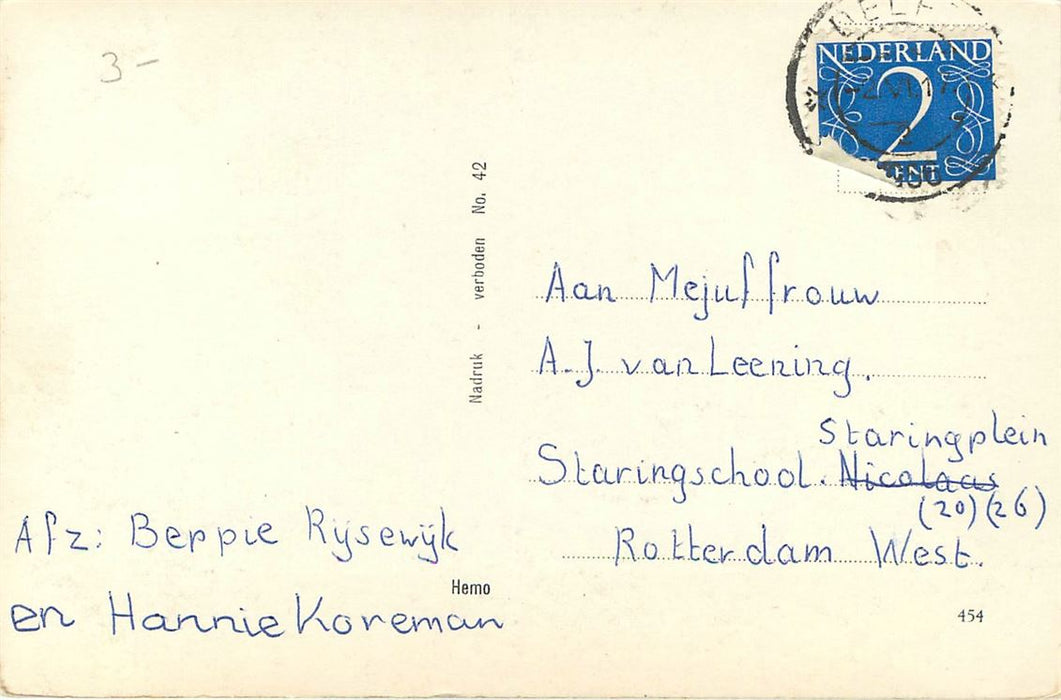 3-
DELF
NEDERLAND
2
CENT
Nadruk - verboden No. 42
Aan Mejuffrouw
A.J. van Leening.
Staringplein
Staringschool. Nicolaas
(20) (26)
Rotterdam West.
Afz: Beppie Rijsewijk
en Hannie Koreman
Hemo
454